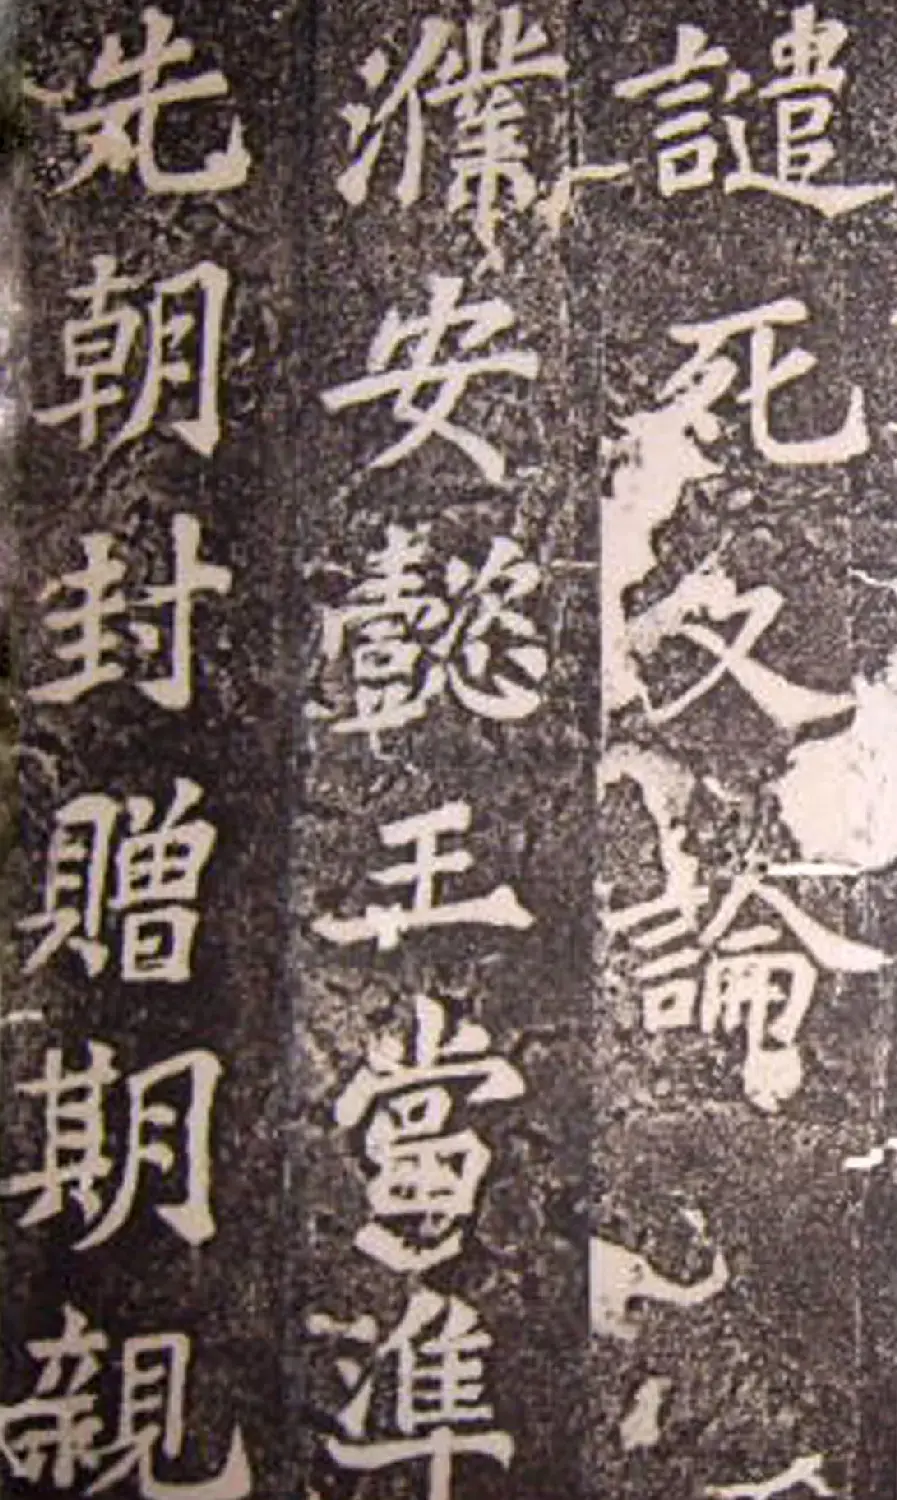 譴死及論
濮安懿王當準
先朝封贈期親